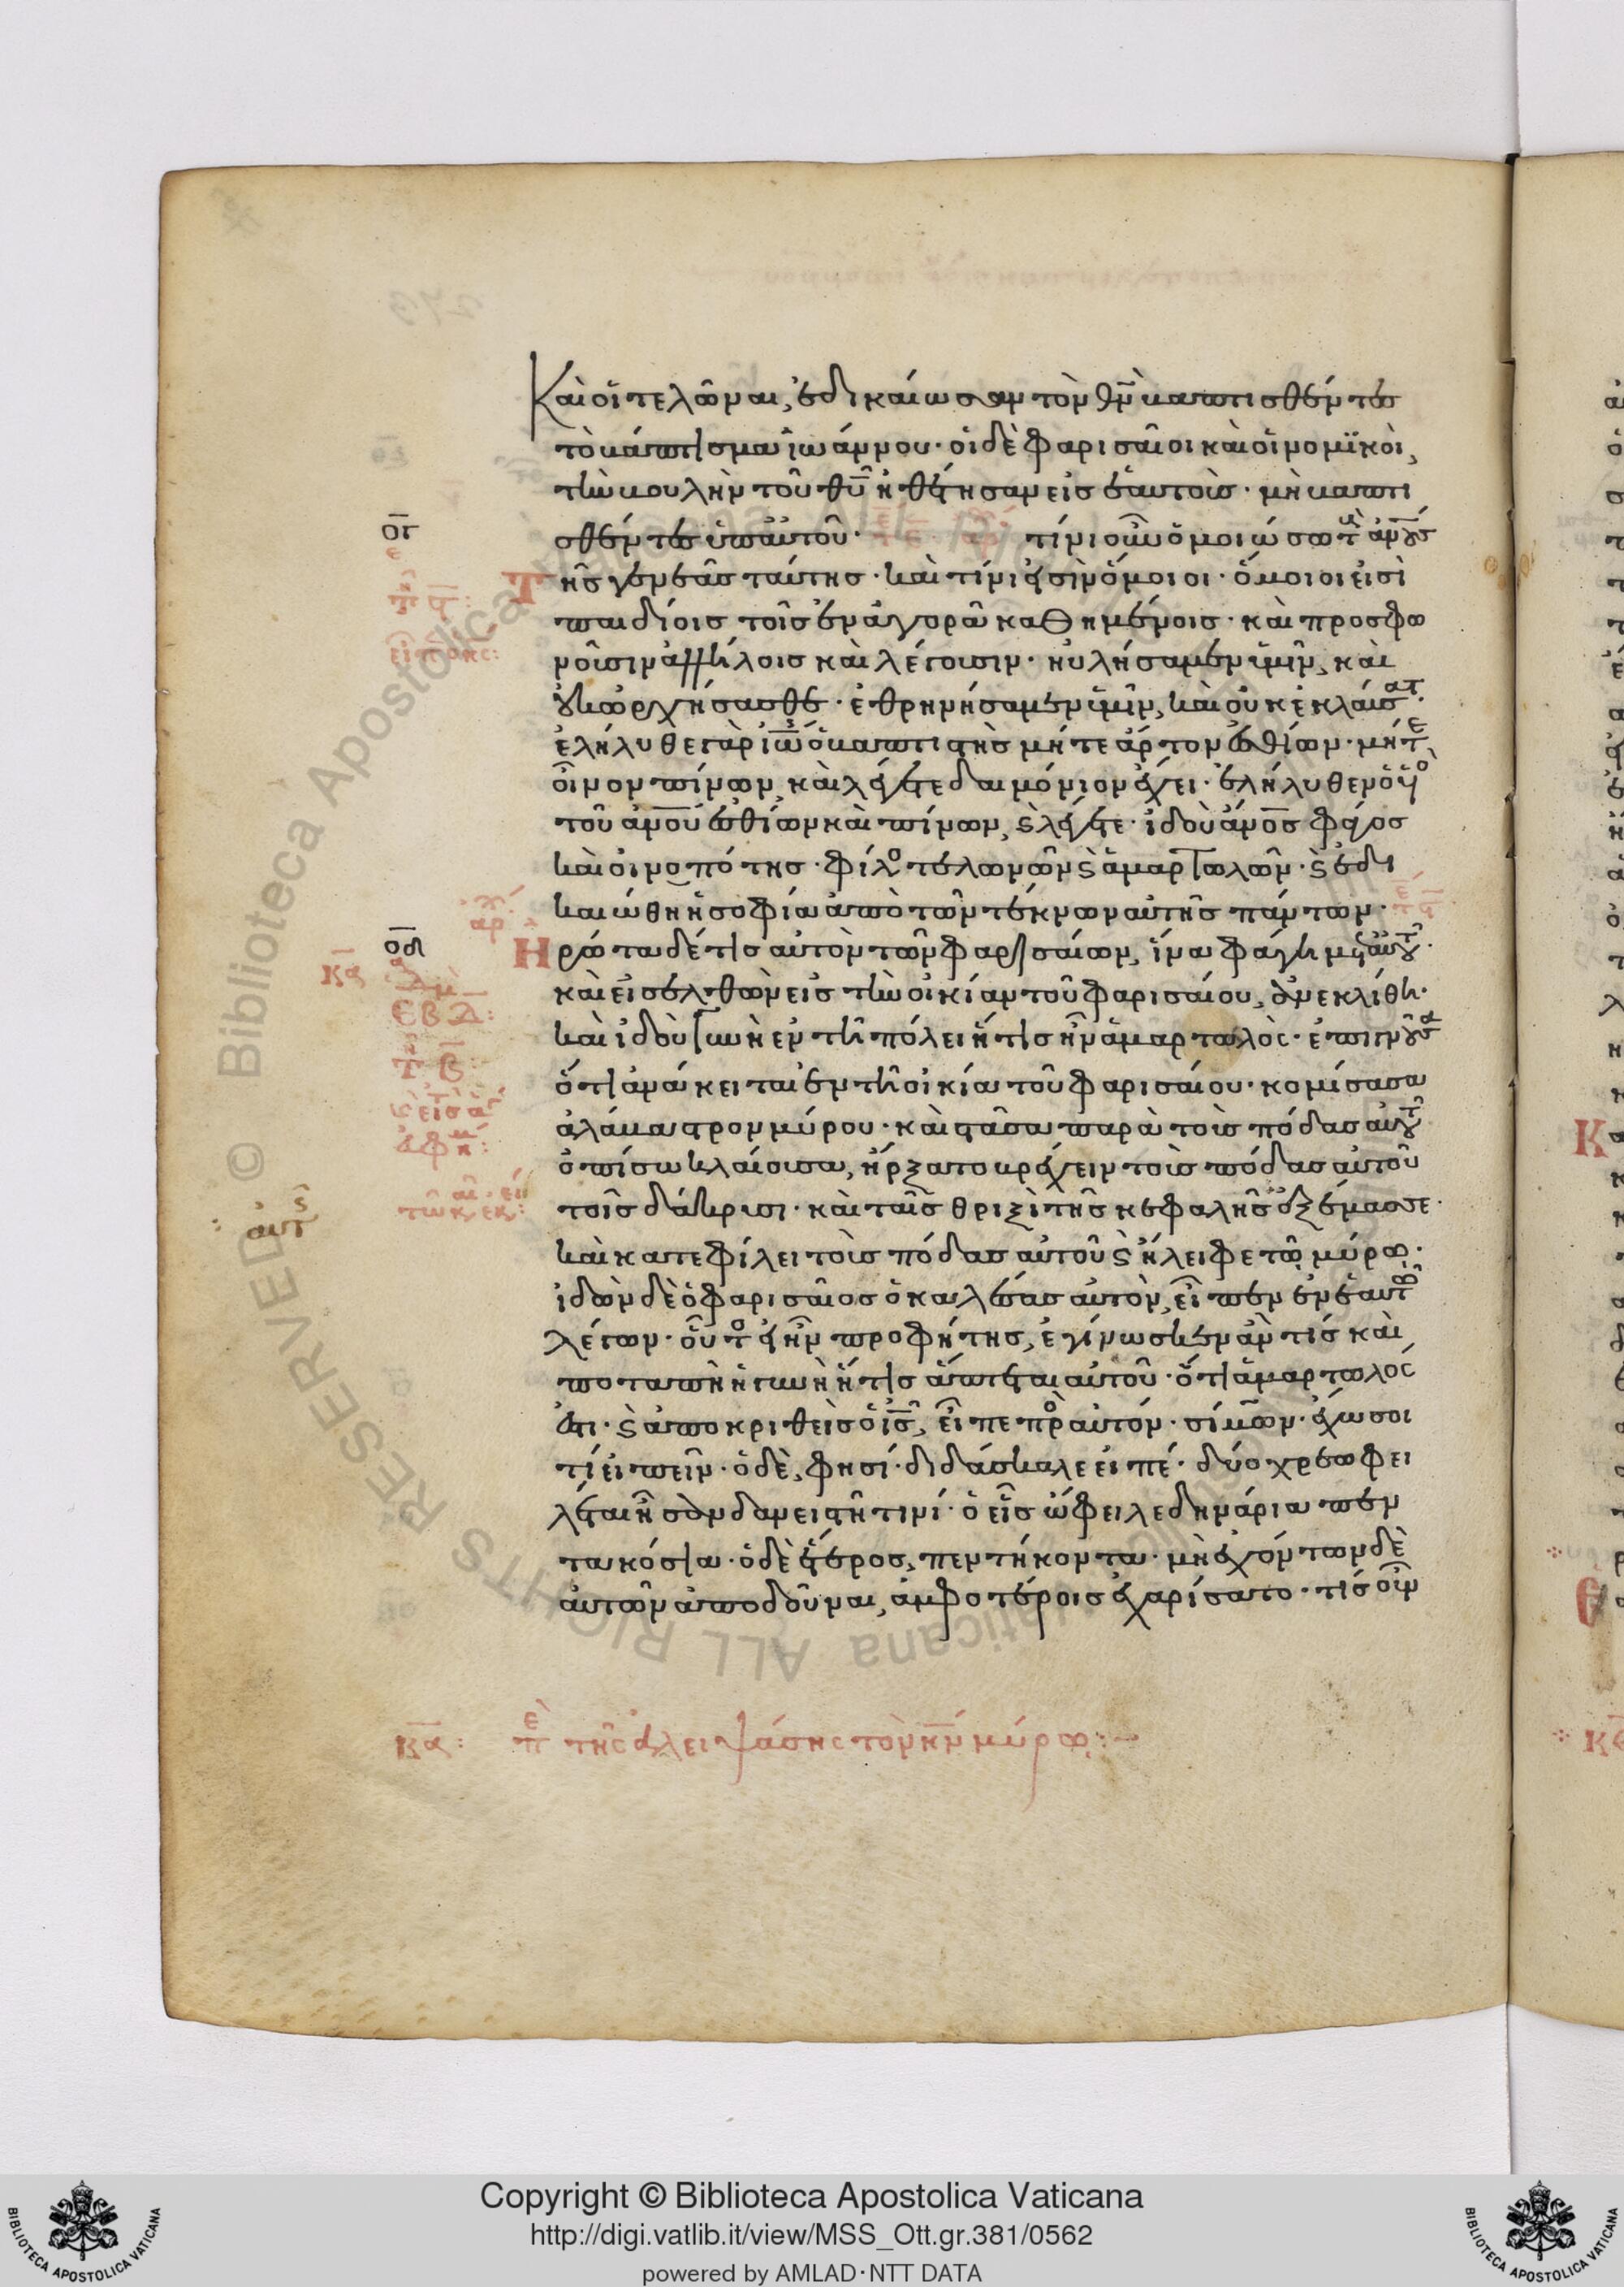 Καὶ οἱ τελῶναι, ἐδικαίωσαν τὸν θν βαπτισθέντες
τὸ βάπτισμα ἰωάννου· οἱ δὲ φαρισαῖοι καὶ οἱ νομϊκοὶ,
τὴν βουλὴν τοῦ θυ ἠθέτησαν εἰς ἑαυτοὺς· μὴ βαπτι
ογ
σθέντες ὑπ αὐτοῦ· τίνι οὖν ὁμοιώσω τοὺς ανους
τῆς γενεᾶς ταύτης· καὶ τίνι εἰσὶν ὅμοιοι· ὅμοιοι εἰσὶ
παιδίοις τοῖς ἐν ἀγορᾶ καθημένοις· καὶ προσφω
νοῦσιν ἀλλήλοις καὶ λέγουσιν· ηὐλήσαμεν ὑμῖν, καὶ
οὐκ ὠρχήσασθε· ἐθρηνήσαμεν ὑμῖν, καὶ οὐκ ἐκλαύσατε·
ἐλήλυθε γὰρ ἰω ὁ βαπτιστὴς μήτε ἄρτον ἐσθίων· μήτε
οἶνον πίνων, καὶ λέγετε δαιμόνιον ἔχει· ἐλήλυθεν ὁ υἱὸς
τοῦ ανου ἐσθίων καὶ πίνων, ϗ λέγετε· ἰδοὺ ανος φάγος
καὶ οἰνοπότης· φίλος τελωνῶν ϗ ἁμαρτωλῶν· ϗ ἐδι
καιώθη ἡ σοφία ἀπὸ τῶν τέκνων αὐτῆς πάντων·
κα
οδ
Ηρώτα δέ τις αὐτὸν τῶν φαρισαίων, ἵνα φάγη μετ αὐτοῦ·
καὶ εἰσελθὼν εἰς τὴν οἰκίαν τοῦ φαρισαίου, ἀνεκλίθη·
καὶ ἰδοὺ γυνὴ ἐν τῆ πόλει ἥτις ἦν ἁμαρτωλὸς· ἐπιγνοῦσα
ὅτι ἀνάκειται ἐν τῆ οἰκία τοῦ φαρισαίου· κομίσασα
ἀλάβαστρον μύρου· καὶ στᾶσα παρὰ τοὺς πόδας αὐτοῦ
ὀπίσω κλαίουσα, ἤρξατο βρέχειν τοὺς πόδας αὐτοῦ
τοῖς δάκρυσι· καὶ ταῖς θριξὶ τῆς κεφαλῆς ἐξέμασσε·
αὐτῆς
καὶ κατεφίλει τοὺς πόδας αὐτοῦ ϗ ἤλειφε τῷ μύρῳ·
ἰδὼν δὲ ὁ φαρισαῖος ὁ καλέσας αὐτὸν, εἶπεν ἐν ἑαυτῶ
λέγων· οὗτος εἰ ἦν προφήτης, ἐγίνωσκεν ἂν τίς καὶ
ποταπὴ ἡ γυνὴ ἥτις ἅπτεται αὐτοῦ· ὅτι ἁμαρτωλὸς
ἐστι· ϗ ἀποκριθεὶς ὁ ις, εἶπε πρὸς αὐτόν· σίμων· ἔχω σοι
τί εἰπεῖν· ὁ δὲ, φησί· διδάσκαλε εἰπέ· δύο χρεωφει
λέται ἦσαν δανειστῆ τινί· ὁ εἷς ὤφειλε δηνάρια πεν
τακόσια· ὁ δὲ ἕτερος, πεντήκοντα· μὴ ἐχόντων δὲ
αὐτῶν ἀποδοῦναι, ἀμφοτέροις ἐχαρίσατο· τίς οὖν
κα: πε τῆς ἀλειψάσης τὸν κν μύρῳ:
Copyright © Biblioteca Apostolica Vaticana
http://digi.vatlib.it/view/MSS_Ott.gr.381/0562
powered by AMLAD·NTT DATA